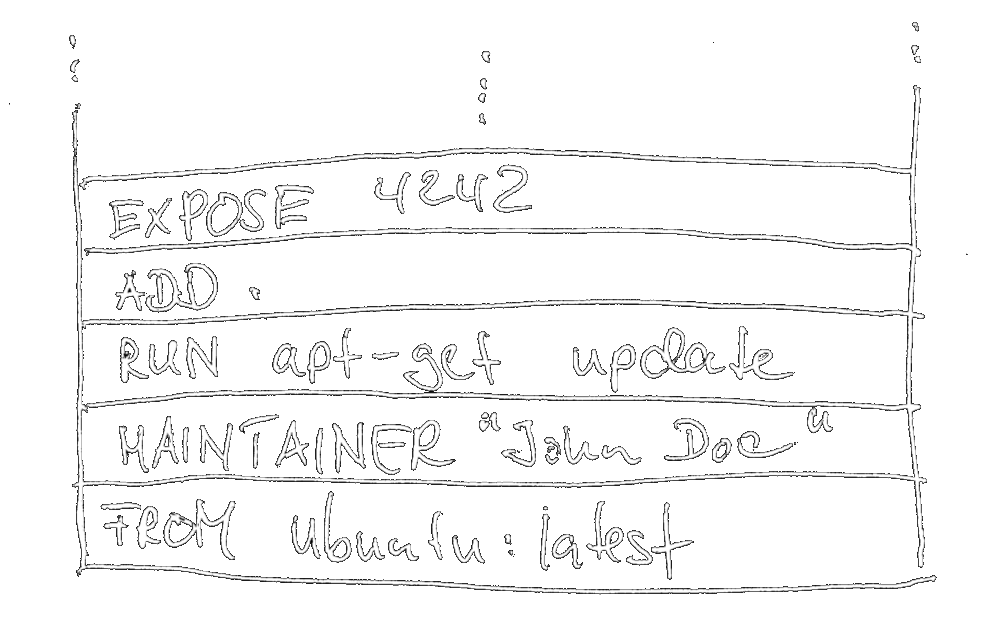 EXPOSE 4242
ADD .
RUN apt-get update
MAINTAINER "John Doe"
FROM ubuntu:latest